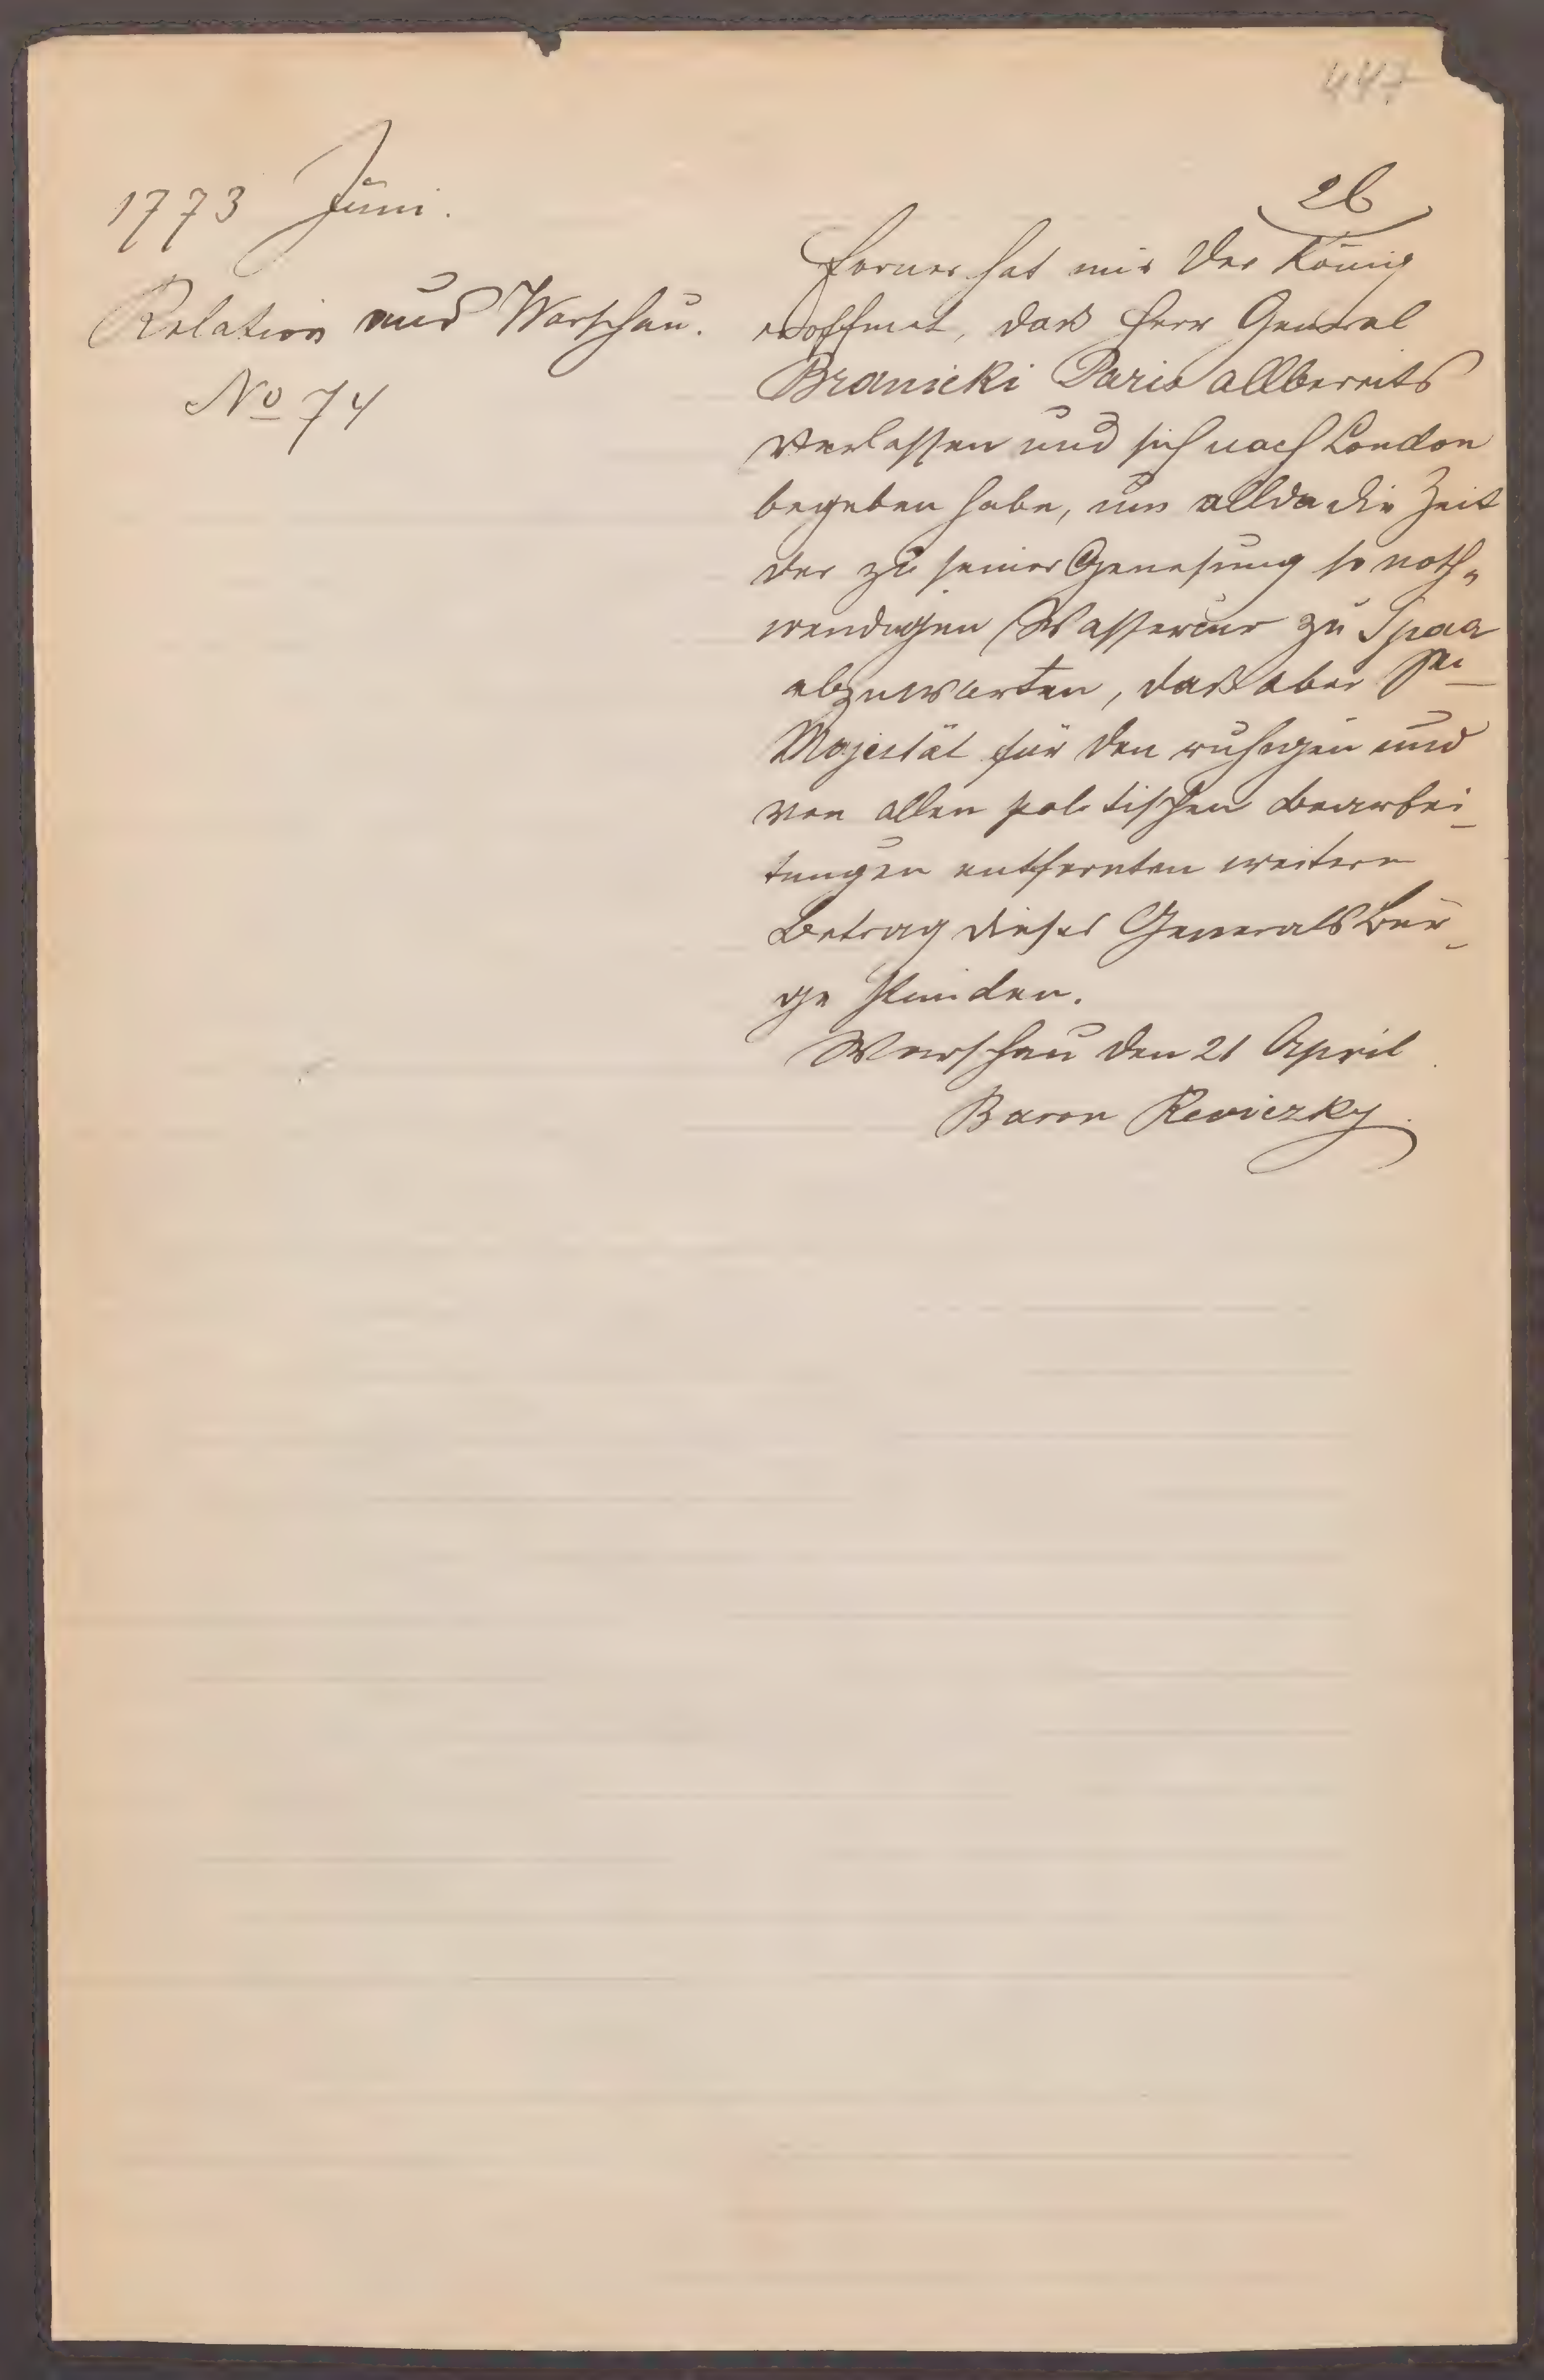 447
26
1773 Juni.
Relation aus Warschau.
No 74
Ferner hat mir der König
eröffnet, daß Herr General
Branicki Paris allbereits
verlassen und sich nach London
begeben habe, um allda die Zeit
der zu seiner Genesung so noth„
wendigen Wassercur zu Spaa
abzuwarten, daß aber Se
Majestät für den ruhigen und
von allen politischen Bearbei_
tungen entfernten weitern
Betrag dieses Generals Bür_
ge stünden.
Warschau den 21 April
Baron Reviczky.